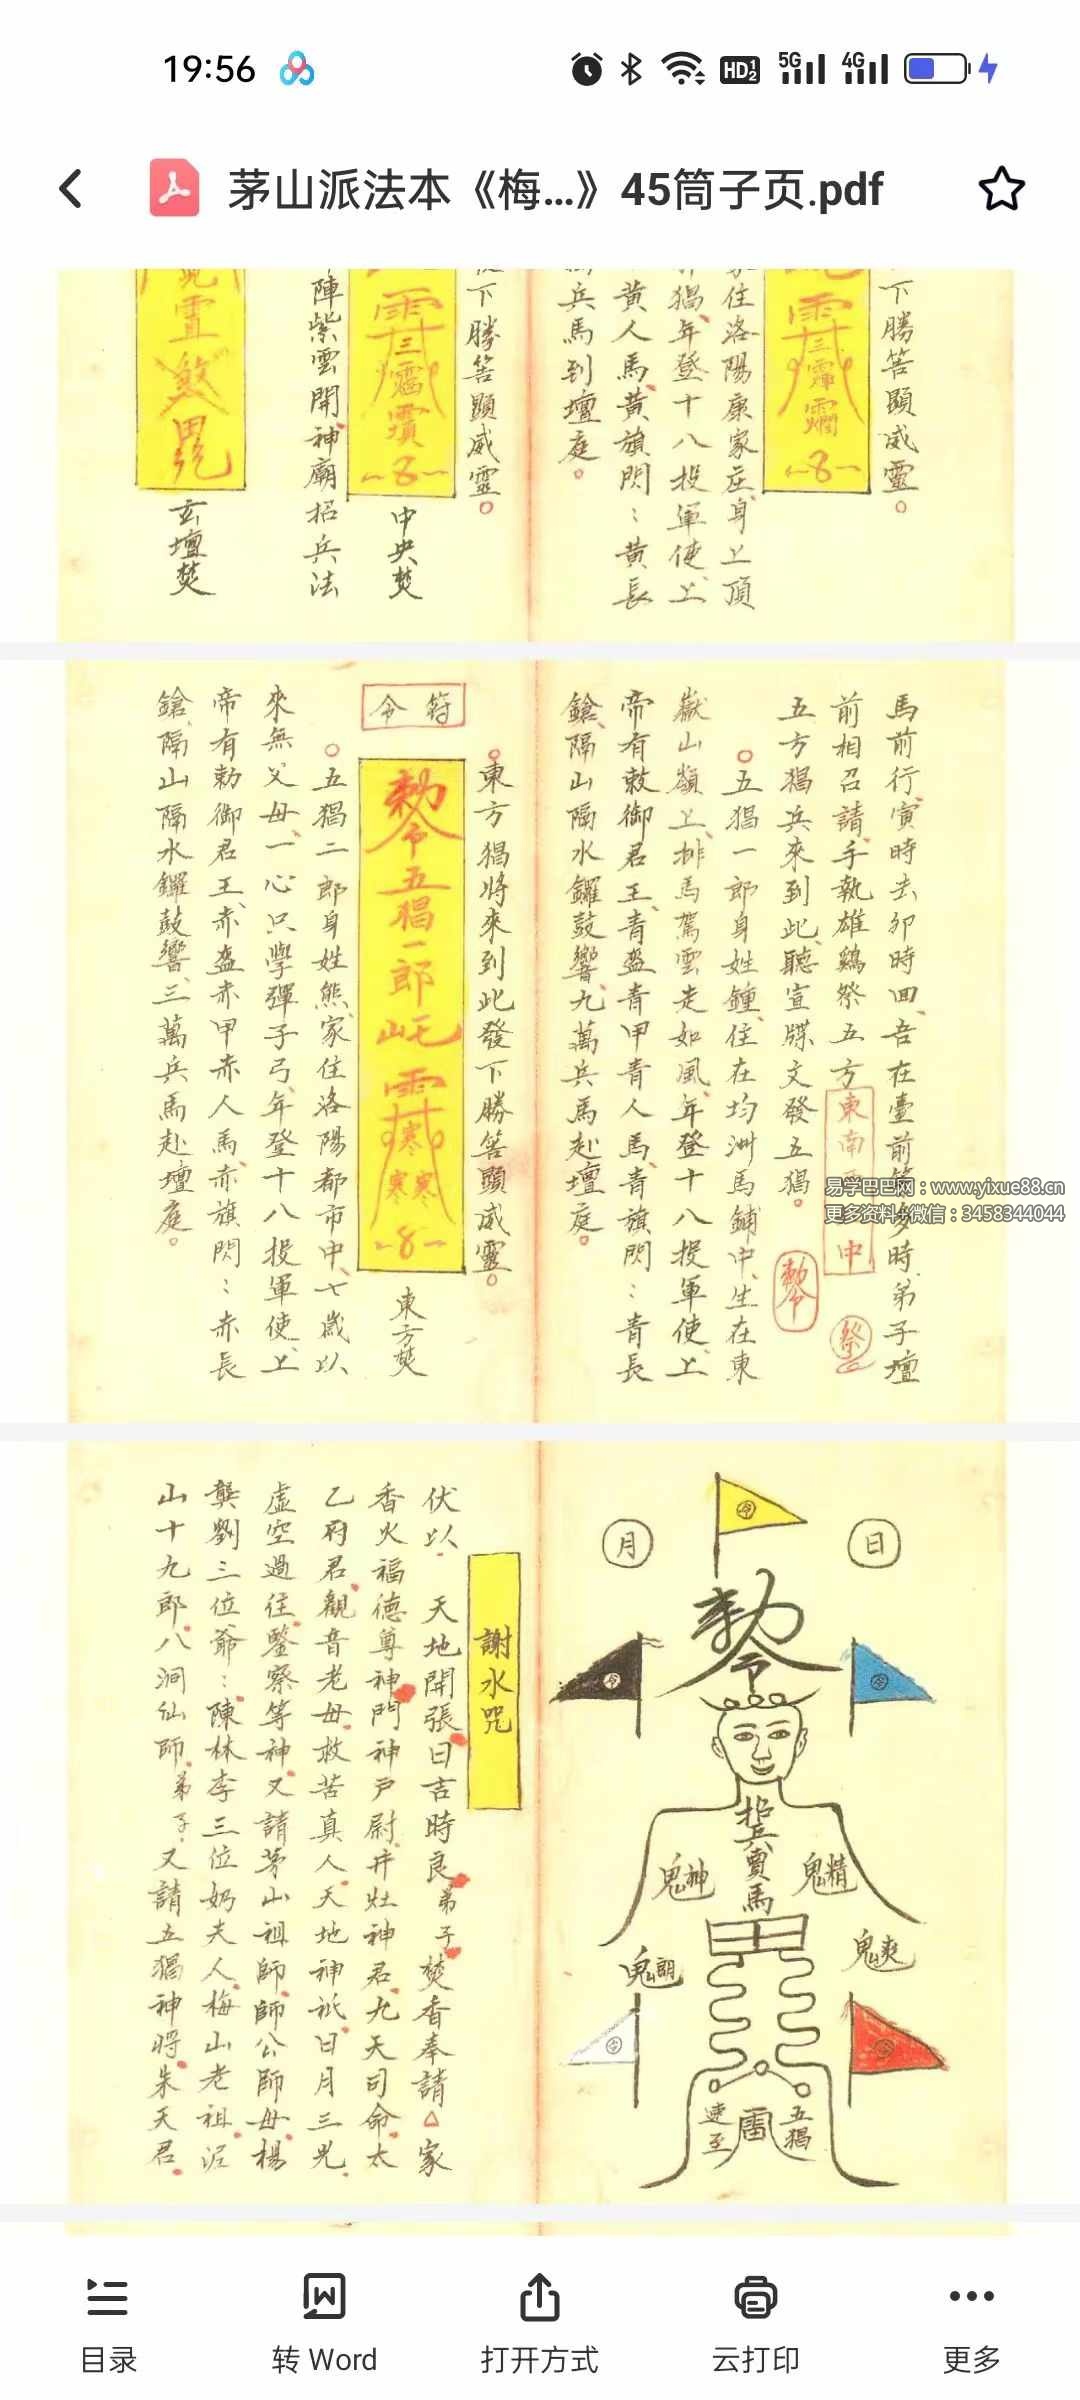 19:56
HD 1 2
5G
4G
茅山派法本《梅...》45筒子页.pdf
下勝筶顯威靈
三
8
住洛陽康家庄身上頂
猖年登十八投軍使上
黃人馬黃旗閃：黃長
兵馬到壇庭
下勝筶顯威靈
三
8
中央焚
陣紫雲開神廟招兵法
玄壇焚
馬前行寅時去卯時回吾在臺前
多時弟子壇
前相召請手執雄鷄祭五方
東南
中
祭
五方猖兵來到此聽宣牒文發五猖
五猖一郎身姓鍾住在均洲馬鋪中生在東
嶽山嶺上排馬駕雲走如風年登十八投軍使上
帝有敕御君王青盔青甲青人馬青旗閃：青長
鎗隔山隔水鑼鼓響九萬兵馬赴壇庭
東方猖將來到此發下勝筶顯威靈
符令
敕令五猖一郎
寒
寒寒
8
東方焚
五猖二郎身姓熊家住洛陽都市中七歲以
來無父母一心只學彈子弓年登十八投軍使上
帝有勅御君王赤盔赤甲赤人馬赤旗閃：赤長
鎗隔山隔水鑼鼓響三萬兵馬赴壇庭
易学巴巴网：www.yixue88.cn
更多资料 微信：3458344044
日
月
令
令
令
令
令
賣馬
雷
五猖
速至
謝水咒
伏以 天地開張日吉時良弟子焚香奉請△家
香火福德尊神門神戶尉井灶神君九天司命太
乙府君觀音老母救苦真人天地神祇日月三光
虛空過往鑒察等神又請茅山祖師師公師母楊
龔劉三位爺：陳林李三位奶夫人梅山老祖泥
山十九郎八洞仙師弟子又請五猖神將朱天君
目录
转 Word
打开方式
云打印
更多